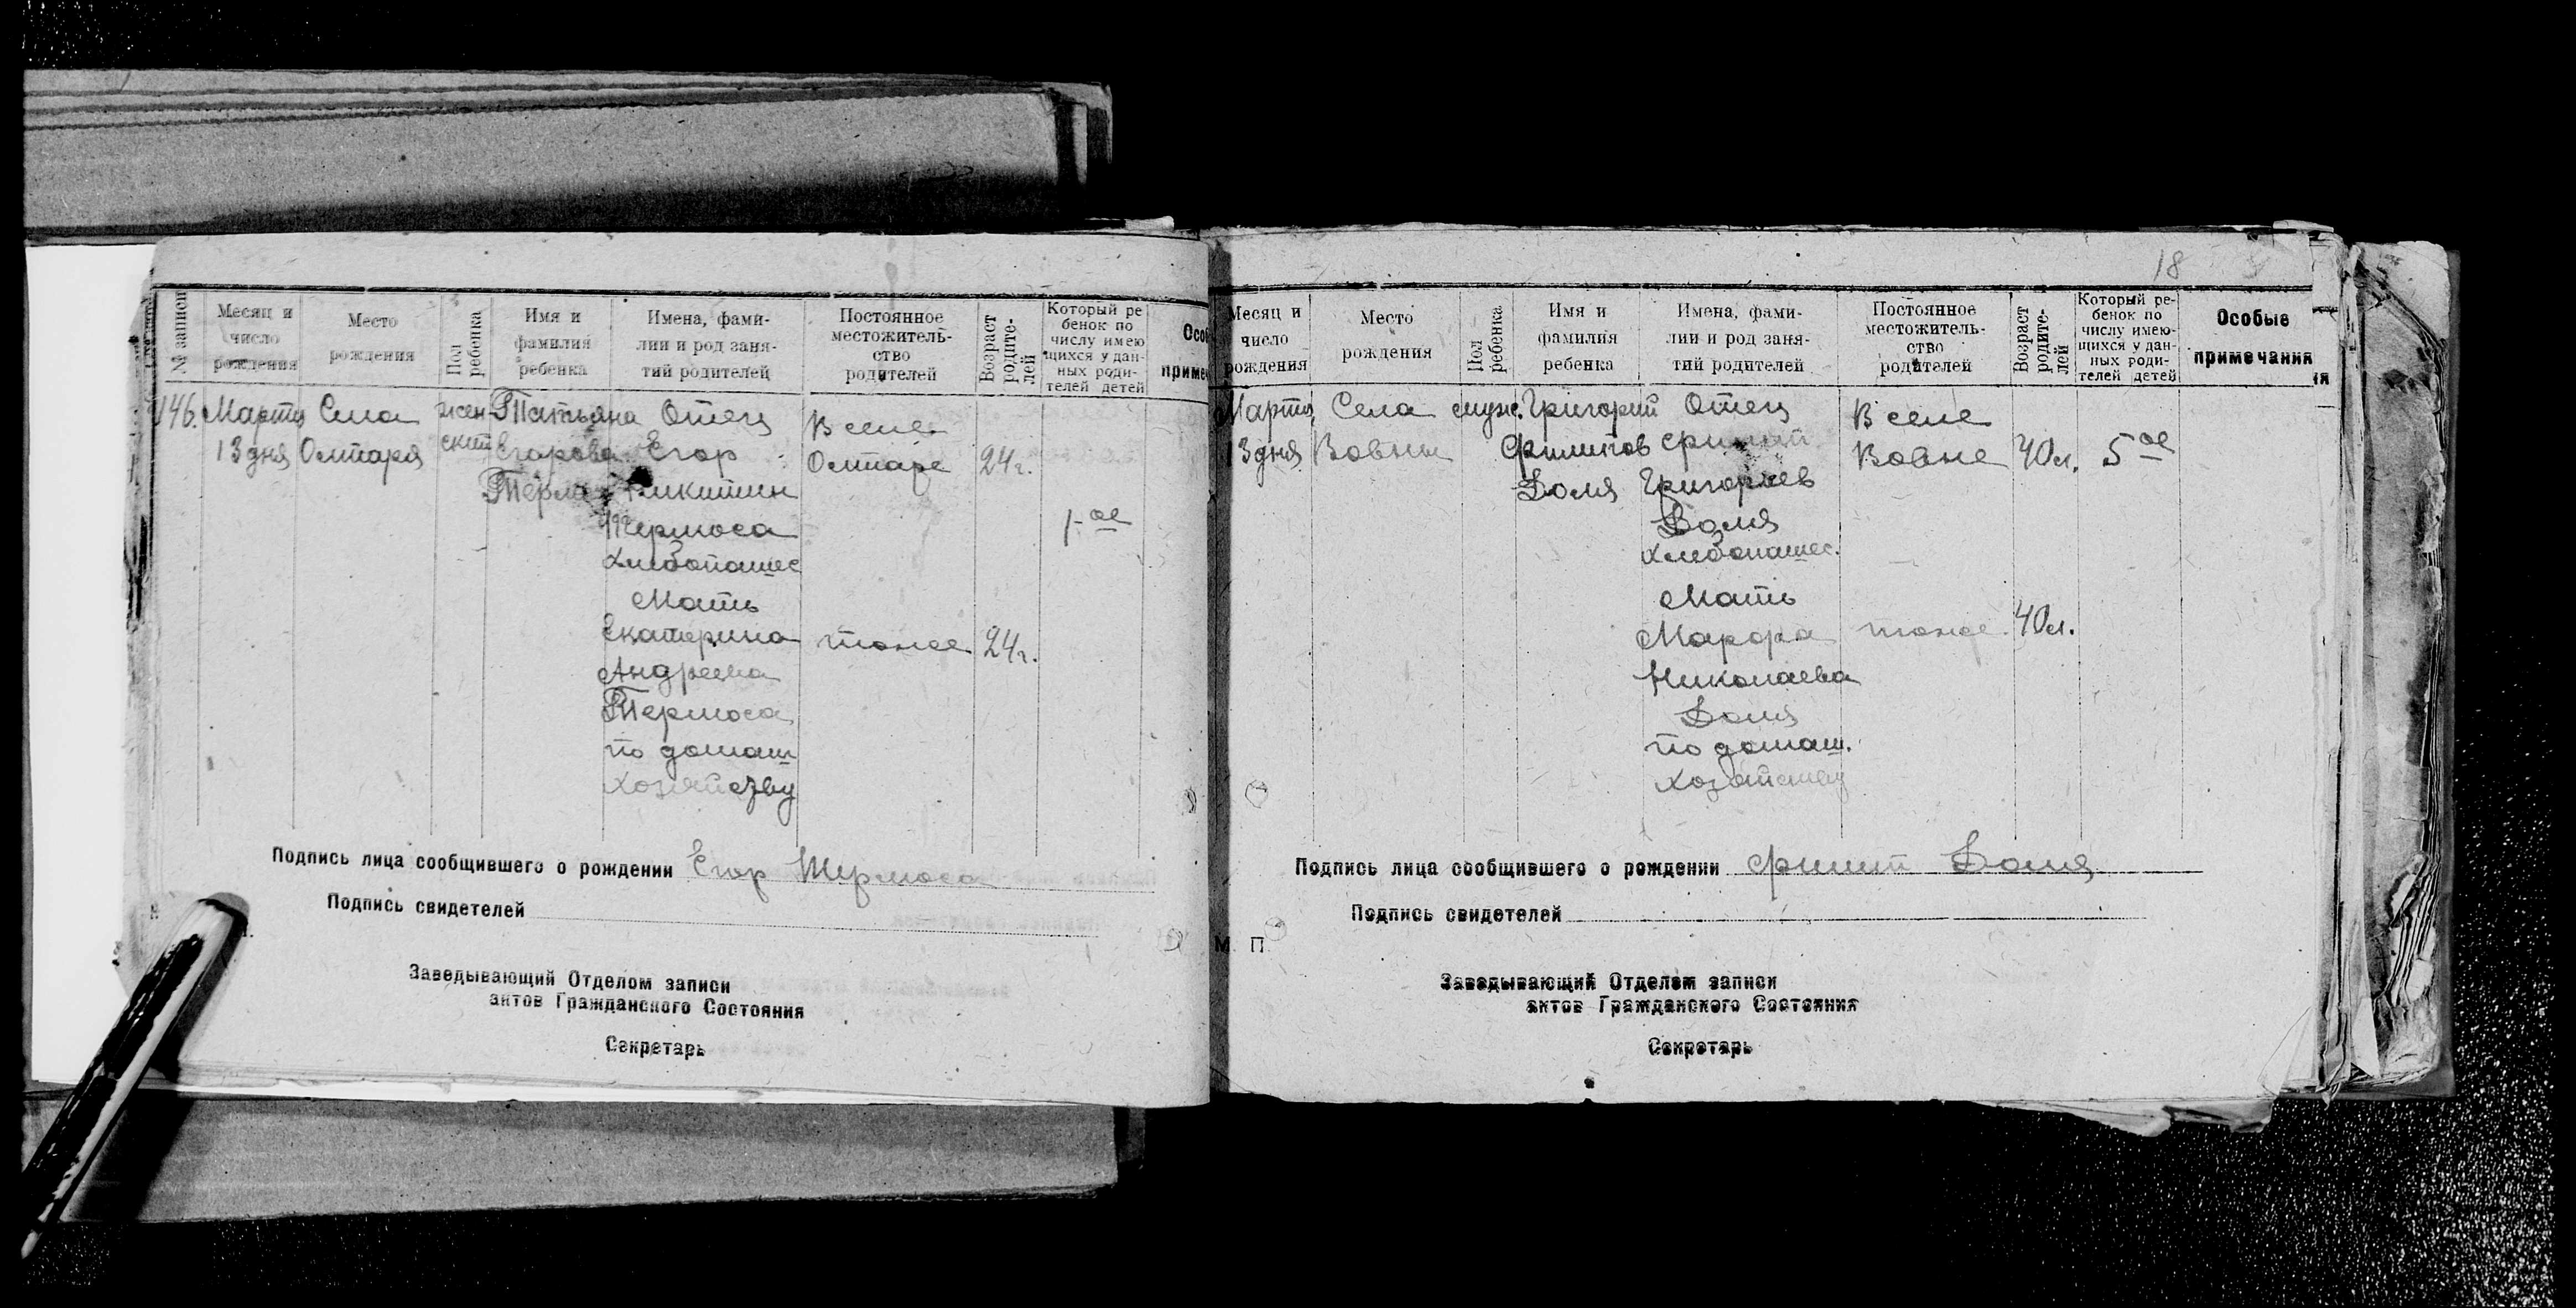 № записи
Месяц и
число
рождения
Место
рождения
Пол
ребенка
Имя и
фамилия
ребенка
Имена, фами-
лии и род заня-
тий родителей
Постоянное
местожитель-
ство
родителей
Возраст
родите-
лей
Который ре
бенок по
числу имею
щихся у дан-
ных роди-
телей детей
146.
Марта
13 дня
Села
Олтаря
жен
ский
Татьяна
Егорова
Отец
Егор
Никитин
хлебопашес
Мать
Екатерина
Андреева
по домаш
хозяйству
В селе
Олтаре
тоже
24 г.
24 г.
1-ое
Подпись лица сообщившего о рождении Егор
Подпись свидетелей
Заведывающий Отделом записи
актов Гражданского Состояния
Секретарь
18
Месяц и
число
рождения
Место
рождения
Пол
ребенка
Имя и
фамилия
ребенка
Имена, фами-
лии и род заня-
тий родителей
Постоянное
местожитель-
ство
родителей
Возраст
родите-
лей
Который ре-
бенок по
числу имею-
щихся у дан-
ных роди-
телей детей
Особые
примечания
Марта
13 дня
Села
Вовны
муж.
Григорий
Филипов
Доля
Отец
Филип
Григориев
Доля
хлебопашес.
Мать
Николаева
Доля
по домаш.
хозяйству
В селе
Вовне
тоже
40 л.
40 л.
5 ое
Подпись лица сообщившего о рождении Филип Доля
Подпись свидетелей
М П
Заведывающий Отделом записи
актов Гражданского Состояния
Секретарь